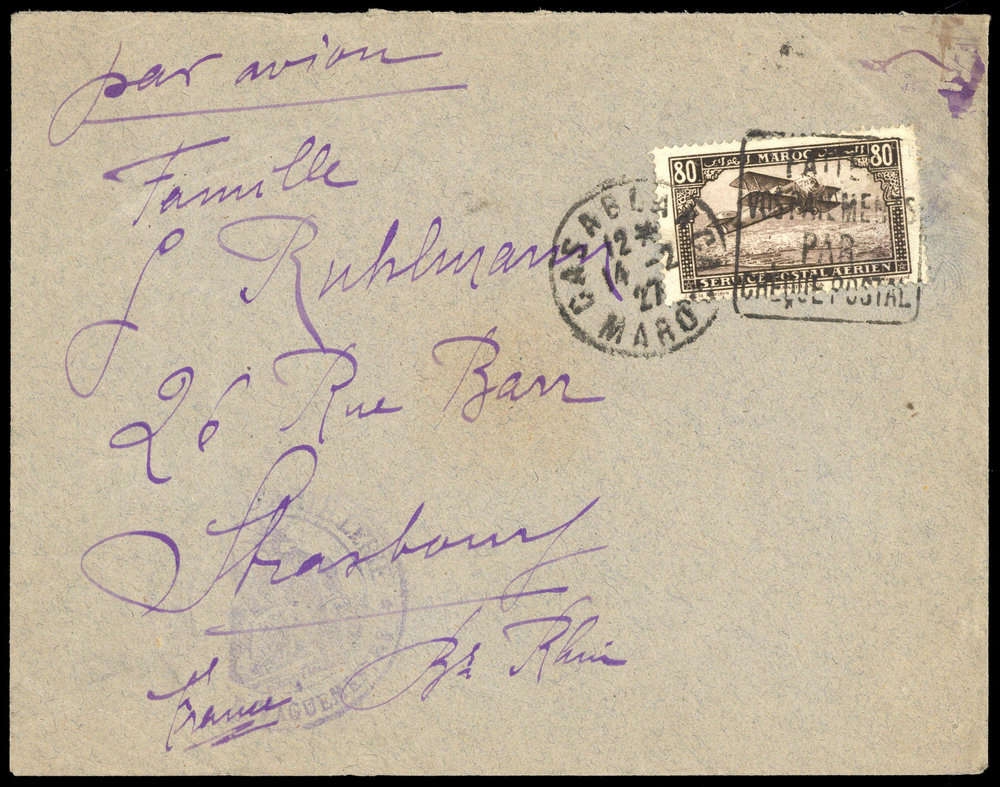 par avion
Famille
J Ruhlmann
26 Rue Barr
Strasbourg
France Bs Rhin
80 MAROC 80
SERVICE POSTAL AÉRIEN
CASABLA
12
14 -2
27
MARO
FAITE
VOS PAIEMENTS
PAR
CHEQUE POSTAL